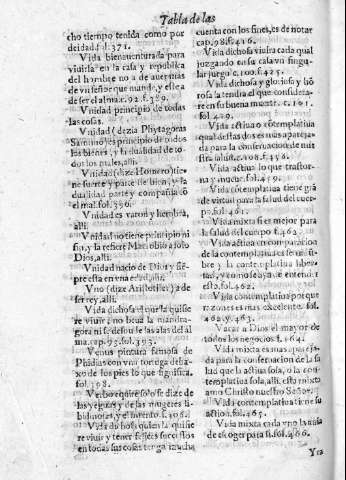 Tabla de las
cho tiempo tenida como por
deidad. f. 371.
Vida bienauenturada para
viuirla en la casa y republika
del hombre no a de auer mas
de vn señor que mande, y esse a
de ser el alma. c. 92. f. 389.
Vnidad principio de todas
las cosas.
Vnidad (dezia Phytagoras
Sammio) es principio de todos
los bienes, y la dualidad de to-
dos los males, alli.
Vnidad (dize Homero) tie-
ne fuerte y parte de bien, y la
dualidad parte y compañia cõ
el mal. fol. 396.
Vnidad es varon y hembra,
alli.
Vnidad no tiene principio ni
fin, y la refiere Macrobio a solo
Dios, alli.
Vnidad nacio de Dios, y siẽ-
pre esta en vna edad, alli.
Vno (dize Aristoteles) a de
ser rey, alli.
Vida dichosa el que la quisie
re viuir, no beua la mandra-
gora ni se desou se las alas del al
ma. cap. 95. fol. 393.
Venus pintura famosa de
Phidias con vna tortuga deba-
xo de los pies lo que significa.
fol. 398.
Verbo equire solo se dize de
las yeguas y de las mugeres li-
bidinosas, y el intento. f. 405.
Vida dichosa quien la quisie
re viuir y tener felices sucessos
en todas sus cosas tenga mucha
cuenta con los fines, es de notar
cap. 98. f. 416.
Vida dichosa viuira cada qual
juzgando en su casa vn singu-
lar juego c. 100. f. 425.
Vida dichosa y gloriosa y hõ
rosa la tendra el que considera-
re en su buena muerte. c. 101.
fol. 429.
Vida actiua o cõtemplatiua
qual destas dos es mas apareja-
da para la conseruacion de nues
tra salud. c. 108. f. 456.
Vida actiua lo que trastor-
na y mueue. fol. 459.
Vida cõtemplatiua tiene grã
de virtud para la salud del cuer-
po. fol. 461.
Vida mixta si es mejor para
la salud del cuerpo f. 462.
Vida actiua en comparacion
de la contemplatiua es se sierua
y la contemplatiua liber-
tas, y como se aya de entender
esto. fol. 462.
Vida contemplatiua porque
razones es mas excelente. fol.
462. y. 463.
Vacar a Dios el mayor de
todos los negocios f. 464.
Vida mixta es mas apareja-
da para la conseruacion de la sa
lud que la actiua sola, o la con-
templatiua sola, alli. esta mixta
amo Christo nuestro Señor.
Vida contemplatiua tiene su
actio. fol. 465.
Vida mixta cada vno la a
de escoger para si. fol. 466.